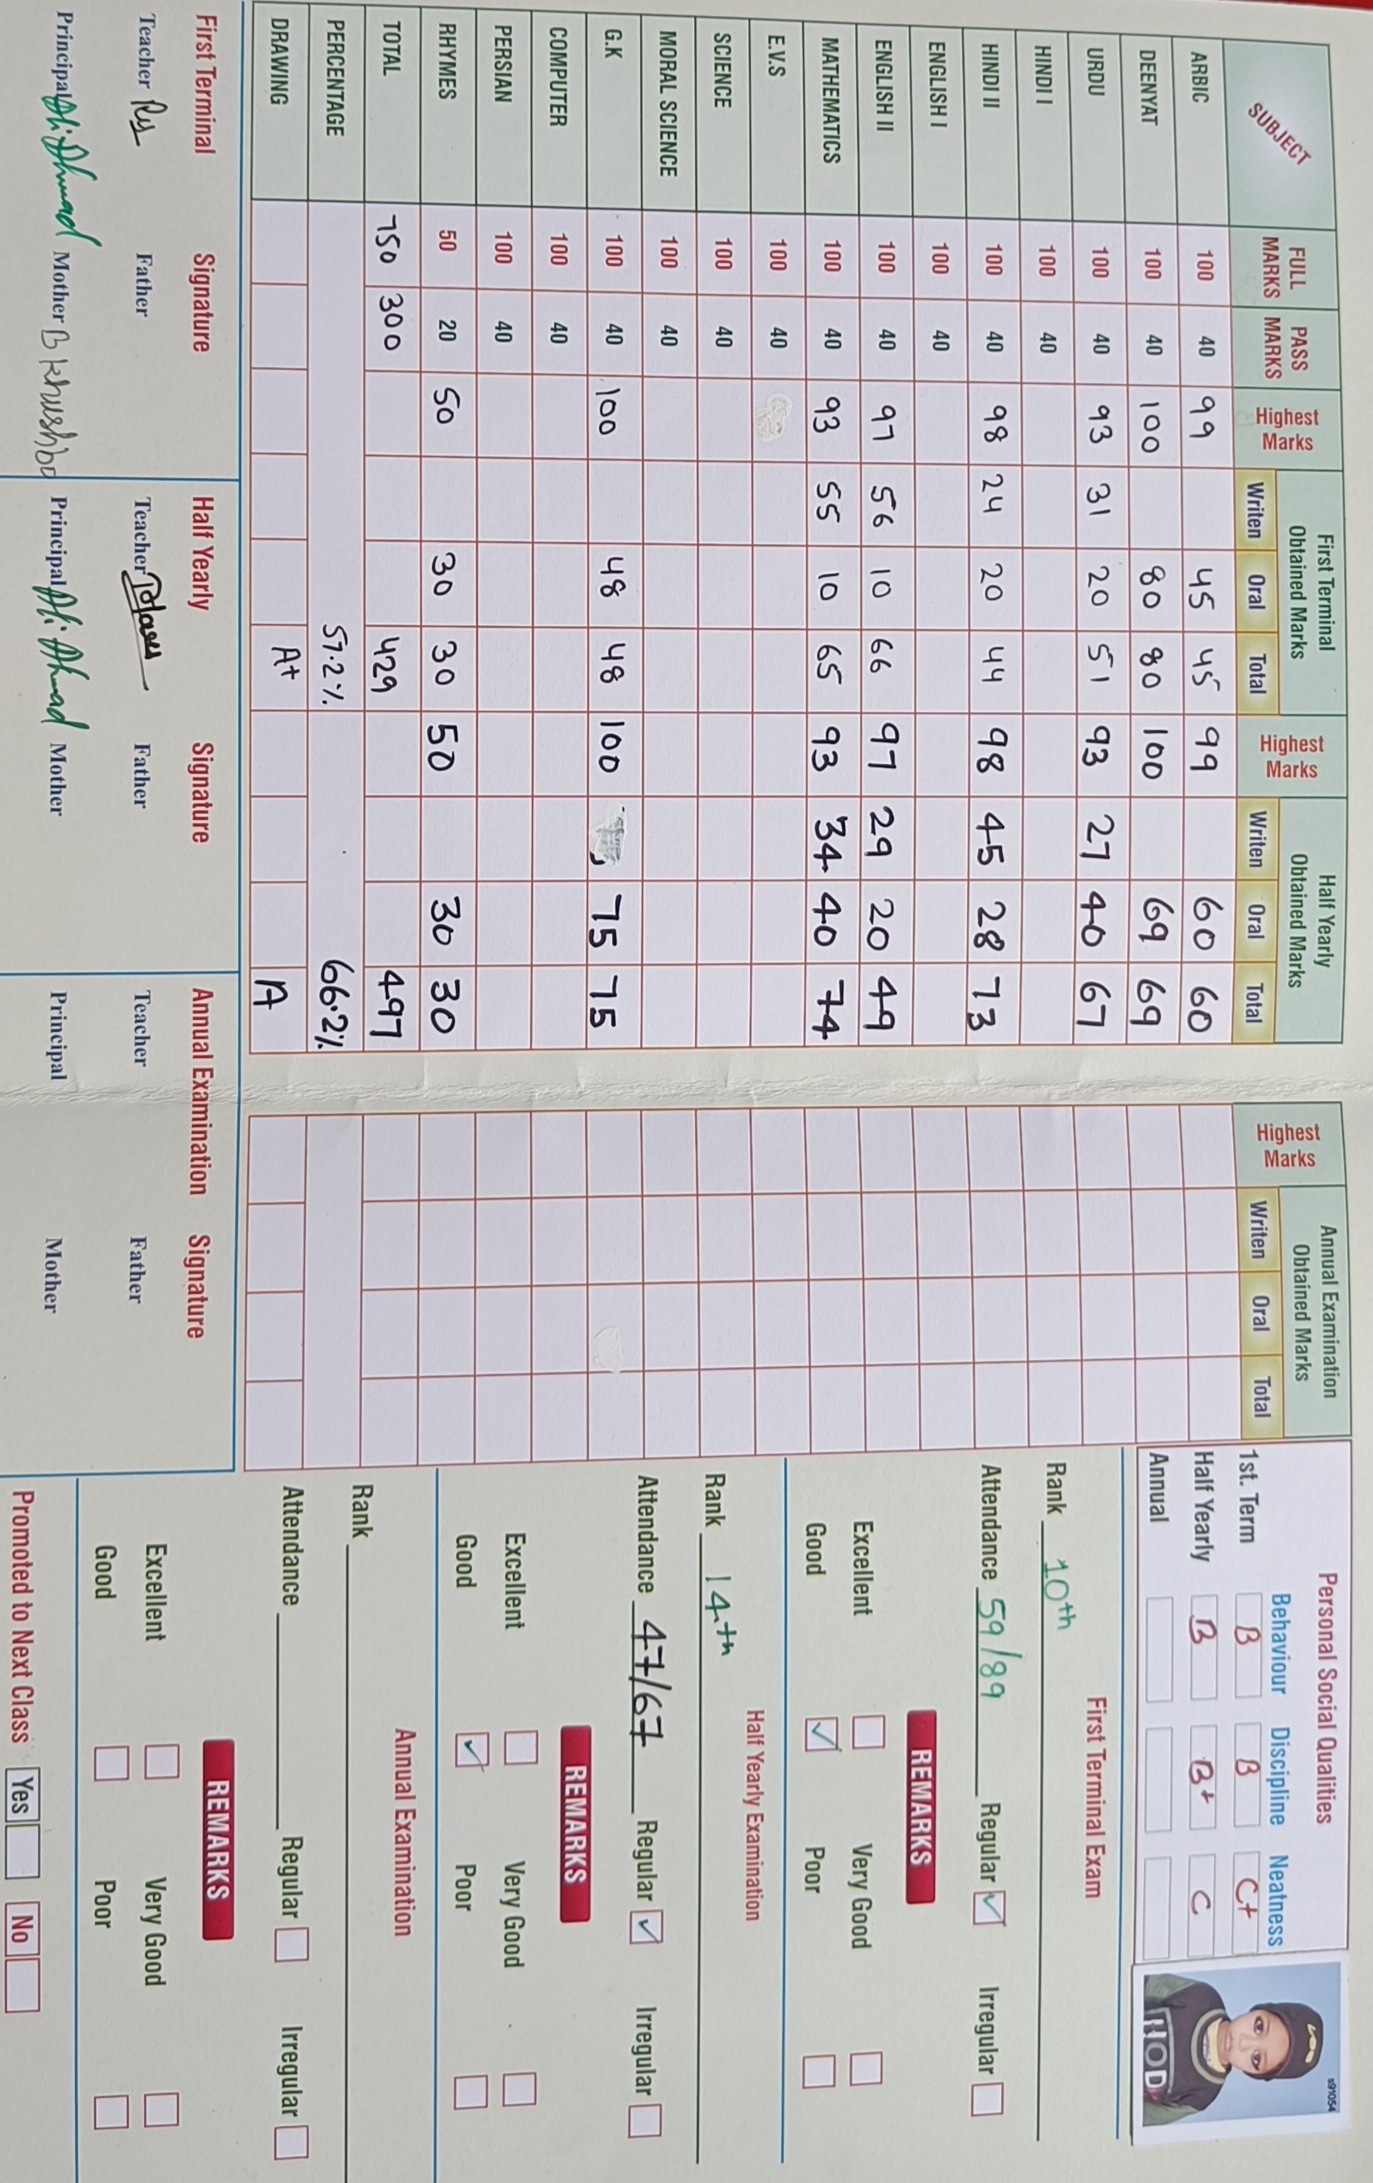 SUBJECT FULL MARKS PASS MARKS Highest Marks First Terminal Obtained Marks Highest Marks Half Yearly Obtained Marks Highest Marks Annual Examination Obtained Marks
Writen Oral Total Writen Oral Total Writen Oral Total
ARBIC 100 40 99 45 45 99 60 60
DEENYAT 100 40 100 80 80 100 69 69
URDU 100 40 93 31 20 51 93 27 40 67
HINDI I 100 40
HINDI II 100 40 98 24 20 44 98 45 28 73
ENGLISH I 100 40
ENGLISH II 100 40 97 56 10 66 97 29 20 49
MATHEMATICS 100 40 93 55 10 65 93 34 40 74
E.V.S 100 40
SCIENCE 100 40
MORAL SCIENCE 100 40
G.K 100 40 100 48 48 100 75 75
COMPUTER 100 40
PERSIAN 100 40
RHYMES 50 20 50 30 30 50 30 30
TOTAL 750 300 429 497
PERCENTAGE 57.2% 66.2%
DRAWING A+ A
First Terminal Signature Half Yearly Signature Annual Examination Signature
Teacher Father Teacher Father Teacher Father
Principal Ali Ahmad Mother B Khushbo Principal Ali Ahmad Mother Principal Mother
Personal Social Qualities
Behaviour Discipline Neatness
1st. Term B B C+
Half Yearly B B+ C
Annual
s91054
HOD
First Terminal Exam
Rank 10th
Attendance 59/89 Regular ✓ Irregular
REMARKS
Excellent Very Good
Good ✓ Poor
Half Yearly Examination
Rank 14th
Attendance 47/67 Regular ✓ Irregular
REMARKS
Excellent Very Good
Good ✓ Poor
Annual Examination
Rank
Attendance Regular Irregular
REMARKS
Excellent Very Good
Good Poor
Promoted to Next Class Yes No